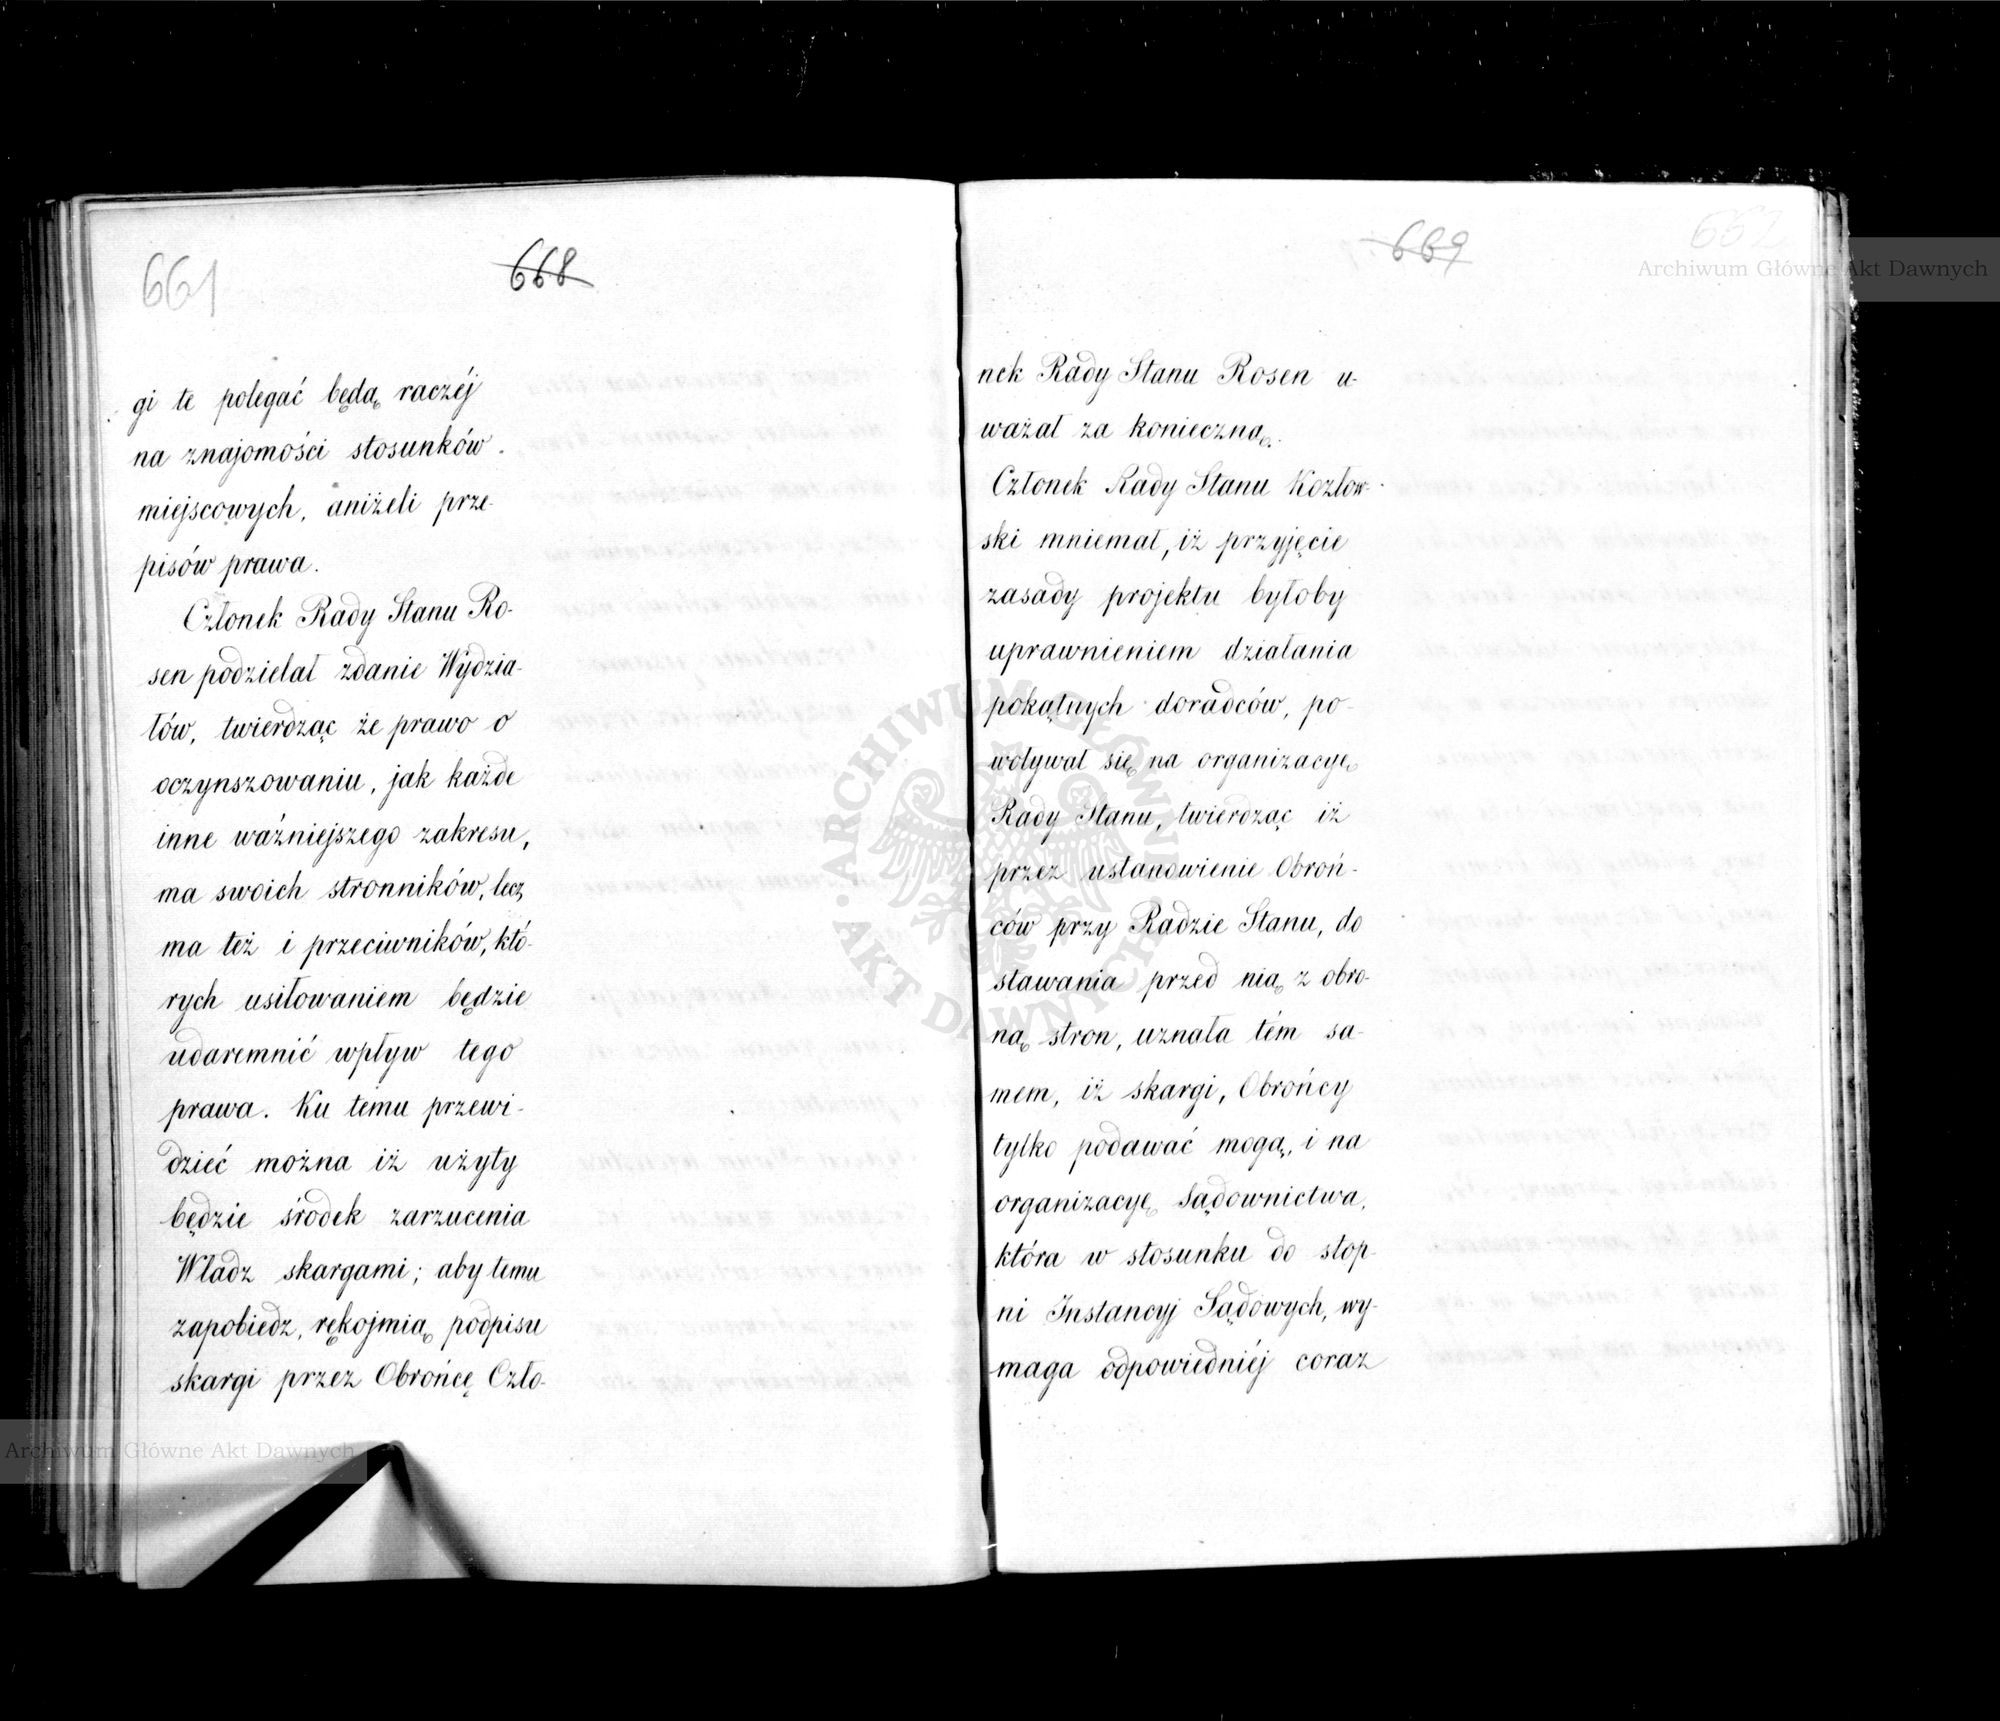 661
668
gi te polegać będą raczéj
na znajomości stosunków
miejscowych, aniżeli prze-
pisów prawa.
Członek Rady Stanu Ro-
sen podzielał zdanie Wydzia-
łów, twierdząc że prawo o
oczynszowaniu, jak każde
inne ważniejszego zakresu,
ma swoich stronników, lecz
ma też i przeciwników, któ-
rych usiłowaniem będzie
udaremnić wpływ tego
prawa. Ku temu przewi-
dzieć można iż użyty
będzie środek zarzucenia
Władz skargami; aby temu
zapobiedz, rękojmią podpisu
skargi przez Obrońcę Czło-
669
662
nek Rady Stanu Rosen u-
ważał za konieczną.
Członek Rady Stanu Kozłow-
ski mniemał, iż przyjęcie
zasady projektu byłoby
uprawnieniem działania
pokątnych doradców, po-
woływał się na organizacyę
Rady Stanu, twierdząc iż
przez ustanowienie Obroń-
ców przy Radzie Stanu, do
stawania przed nią z obro-
ną stron, uznała tém sa-
mem, iż skargi, Obrońcy
tylko podawać mogą, i na
organizacyę Sądownictwa,
która w stosunku do stop-
ni Instancyj Sądowych, wy-
maga odpowiedniéj coraz
Archiwum Główne Akt Dawnych
Archiwum Główne Akt Dawnych
ARCHIWUM GŁÓWNE
AKT DAWNYCH